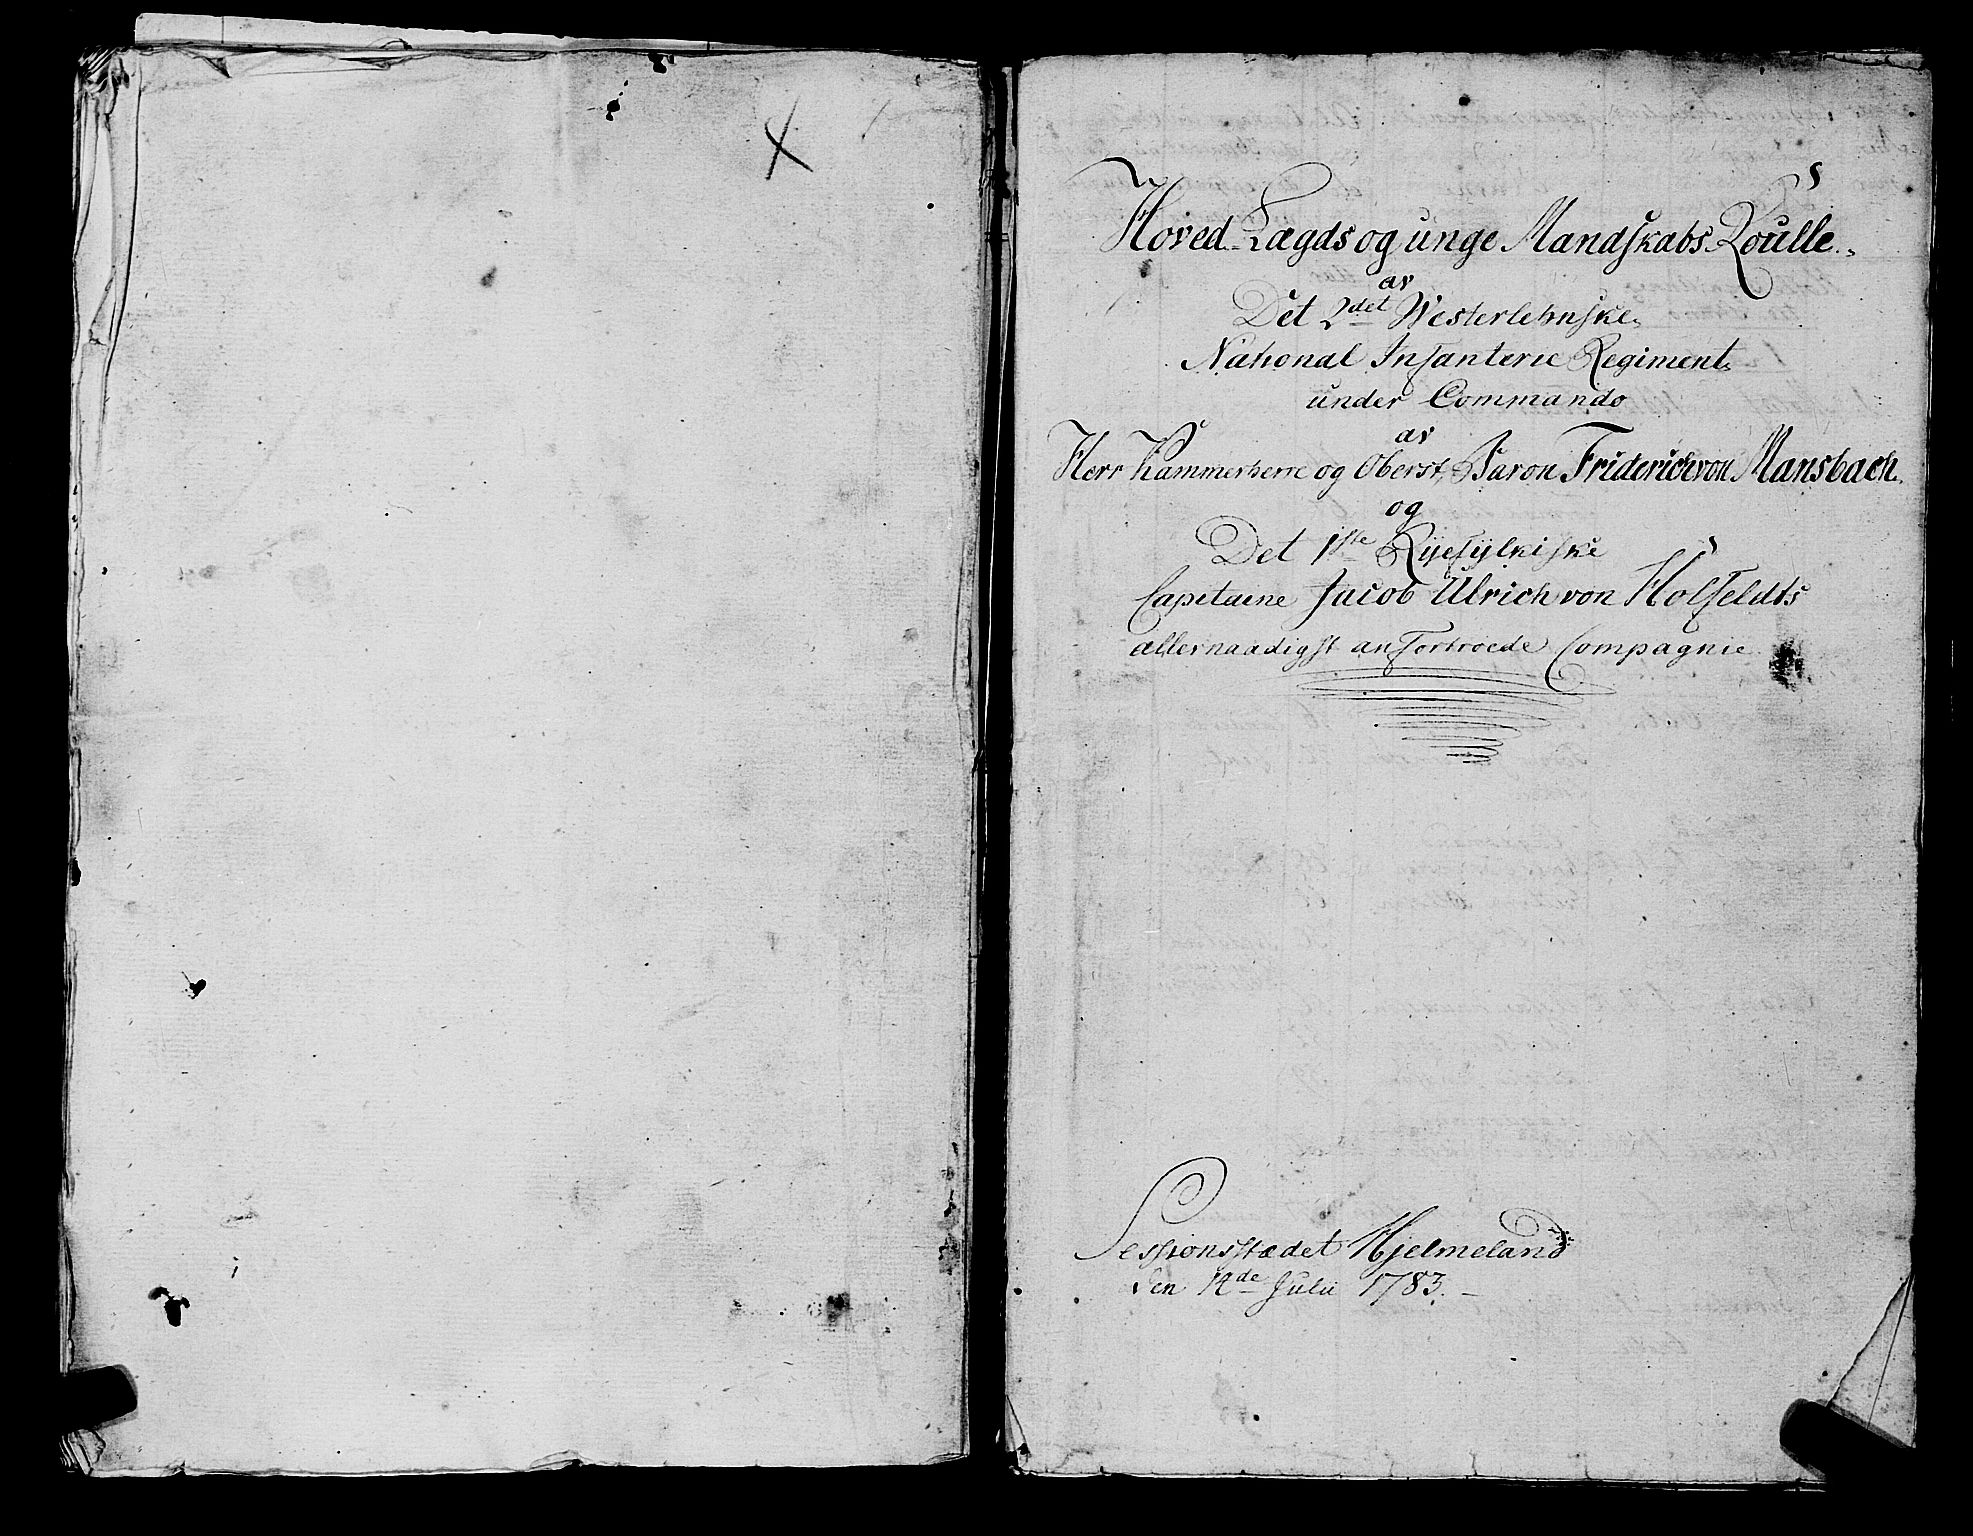 X
Hoved-Lægds og unge Mandskabs Roulle.
av
Det 2det Westerlehnske
National Infanterie Regiment
under Commando
av
Herr Kammerherre og Oberst, Baron Friderich von Mansbach.
og
Det 1ste Ryefylkiske
Capitaine Jacob Ulrich von Holfeldts
allernaadigst anfortroede Compagnie
Sessionsstædet Hjelmeland
den 14de Julii 1783.